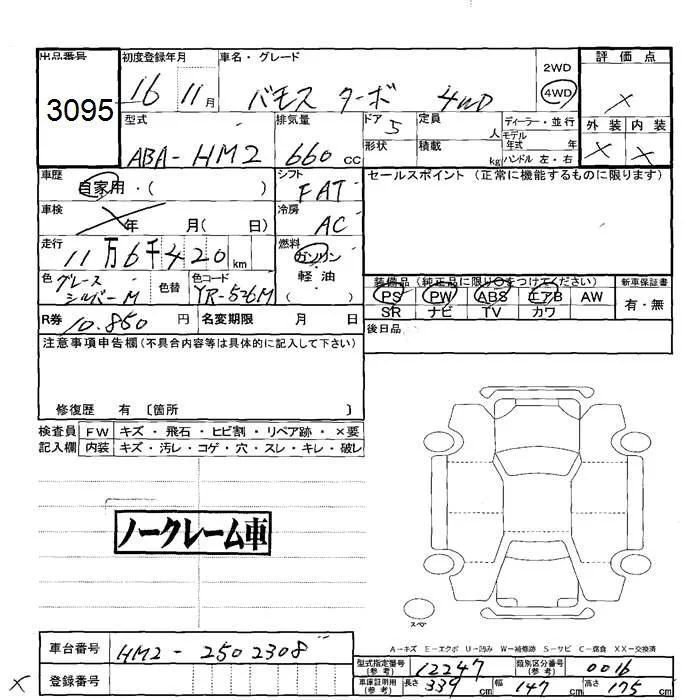 出品番号 初度登録年月 車名・グレード 評価点
3095 16 11月 バモス ターボ 4WD 2WD 4WD ×
型式 排気量 ドア 定員 ディーラー・並行 外装 内装
ABA-HM2 660 CC 5 人 モデル年式 年 × ×
形状 積載 kg ハンドル 左・右
車歴 自家用・( ) シフト FAT セールスポイント (正常に機能するものに限ります)
車検 ×年 月( 日) 冷房 AC
走行 11万6千420km 燃料 ガソリン 軽油 ( )
色 グレースシルバーM 色替 色コード YR-536M
装備品 (純正品に限り○をつけてください) 新車保証書
PS PW ABS エアB AW 有・無
SR ナビ TV カワ
R券 10.850円 名変期限 月 日 後日品
注意事項申告欄(不具合内容等は具体的に記入して下さい)
修復歴 有 〔箇所 〕
検査員 FW キズ・飛石・ヒビ割・リペア跡・×要
記入欄 内装 キズ・汚レ・コゲ・穴・スレ・キレ・破レ
ノークレーム車
スペア
A-キズ E-エクボ U-凹み W-補修跡 S-サビ C-腐食 XX-交換済
車台番号 HM2-2502308 型式指定番号(参考) 12247 類別区分番号(参考) 0016
× 登録番号 車庫証明用(参考) 長さ 339cm 幅 147cm 高さ 175cm